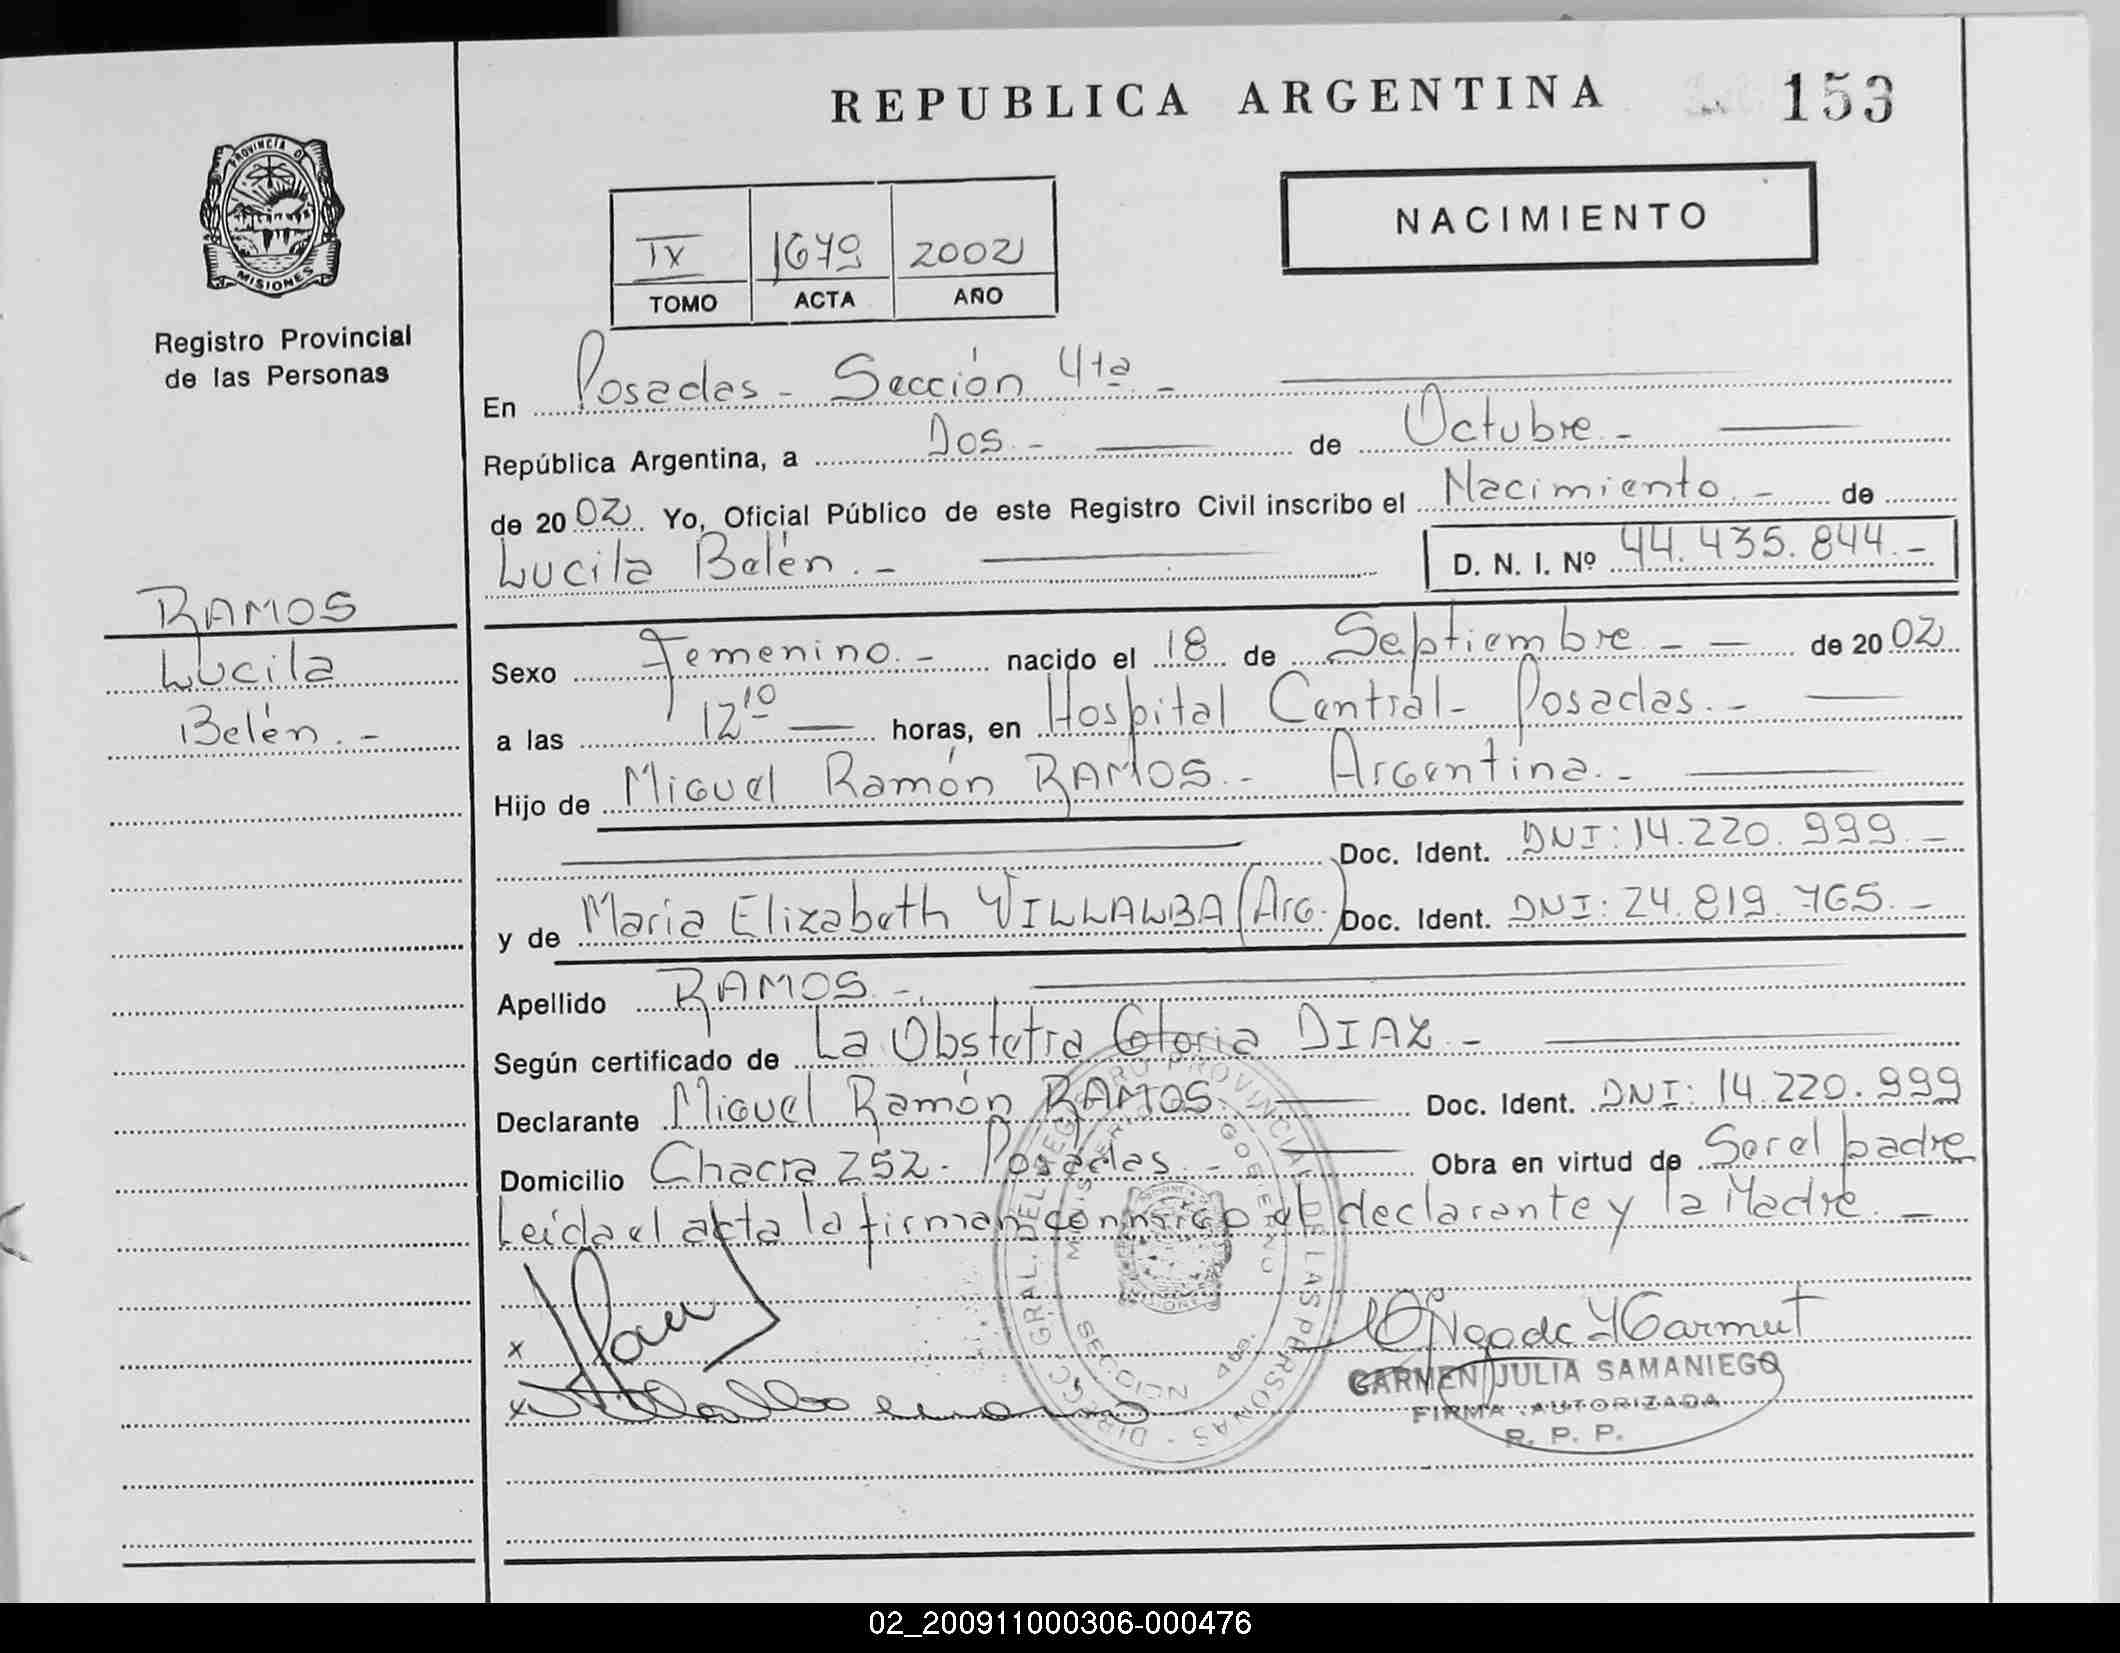 REPUBLICA ARGENTINA 153
PROVINCIA DE
MISIONES
Registro Provincial
de las Personas
NACIMIENTO
IX 1679 2002
TOMO ACTA AÑO
En Posadas - Sección 4ta -
República Argentina, a Dos - de Octubre -
de 2002 Yo, Oficial Público de este Registro Civil inscribo el Nacimiento. - de
Lucila Belén. - D. N. I. Nº 44.435.844. -
RAMOS
Lucila
Belén. -
Sexo Femenino. - nacido el 18 de Septiembre - - de 2002
a las 12 10 horas, en Hospital Central - Posadas. -
Hijo de Miguel Ramón RAMOS. - Argentina. -
Doc. Ident. DNI: 14.220.999. -
y de Maria Elizabeth VILLALBA (Arg.) Doc. Ident. DNI: 24.819.765. -
Apellido RAMOS -
Según certificado de La Obstetra Gloria DIAZ -
Declarante Miguel Ramón RAMOS. Doc. Ident. DNI: 14.220.999
Domicilio Chacra 252 - Posadas. - Obra en virtud de Ser el padre
Leída el acta la firman conmigo el declarante y la Madre. -
DIRECC. GRAL. DEL REGISTRO PROVINCIAL DE LAS PERSONAS
GOBIERNO
SECCION 4ta.
MISIONES
x
x
CARMEN JULIA SAMANIEGO
FIRMA AUTORIZADA
R. P. P.
02_200911000306-000476